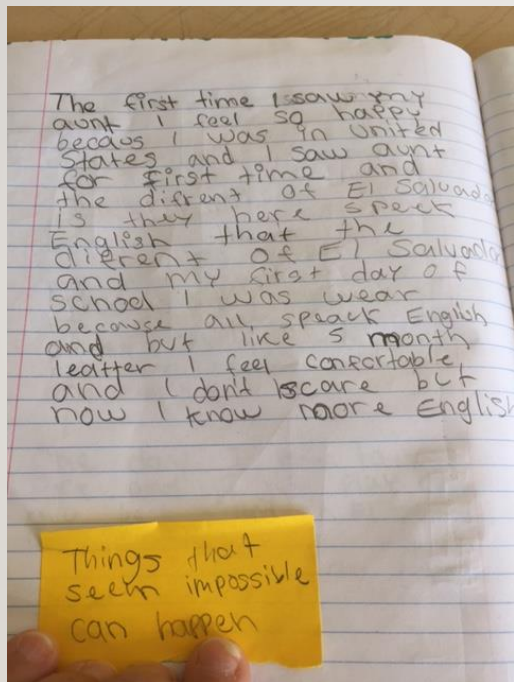 The first time I saw my
aunt I feel so happy
becaus I was in United
States and I saw aunt
for first time and
the difrent of El Salvador
is they here speck
English that the
diferent of El Salvador
and my first day of
school I was wear
because all speack English
and but like 5 month
leatter I feel confortable
and I don't scare but
now I know more English
Things that
seem impossible
can happen